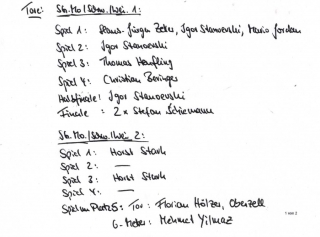 Tore: St. Mo/Schw./Wei. 1:
Spiel 1: Hans-Jürgen Zeter, Igor Stanoevski, Mario Jordan
Spiel 2: Igor Stanoevski
Spiel 3: Thomas Hempfling
Spiel 4: Christian Beringer
Halbfinale: Igor Stanoevski
Finale: 2 x Stefan Schiemann
St. Mo/Schw./Wei 2:
Spiel 1: Horst Stark
Spiel 2: —
Spiel 3: Horst Stark
Spiel 4: —
Spiel um Platz 5: Tor: Florian Hölzer, Oberzell
6-Meter: Mehmet Yilmaz
1 von 2